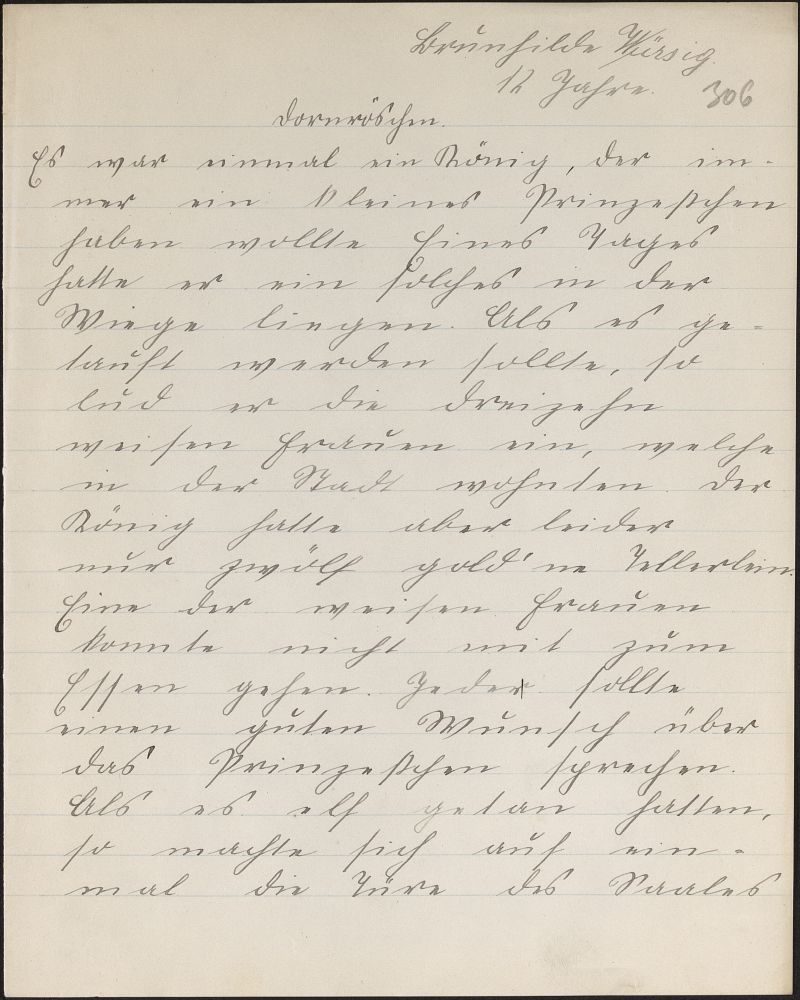 Brunhilde Würsig.
12 Jahre. 306
Dornröschen.
Es war einmal ein König, der im-
mer ein kleines Prinzeßchen
haben wollte Eines Tages
hatte er ein solches in der
Wiege liegen. Als es ge-
tauft werden sollte, so
lud er die dreizehn
weisen Frauen ein, welche
in der Stadt wohnten. Der
König hatte aber leider
nur zwölf gold'ne Tellerlein.
Eine der weisen Frauen
konnte nicht mit zum
Essen gehen. Jeder sollte
einen guten Wunsch über
das Prinzeßchen sprechen.
Als es elf getan hatten,
so machte sich auf ein-
mal die Türe des Saales